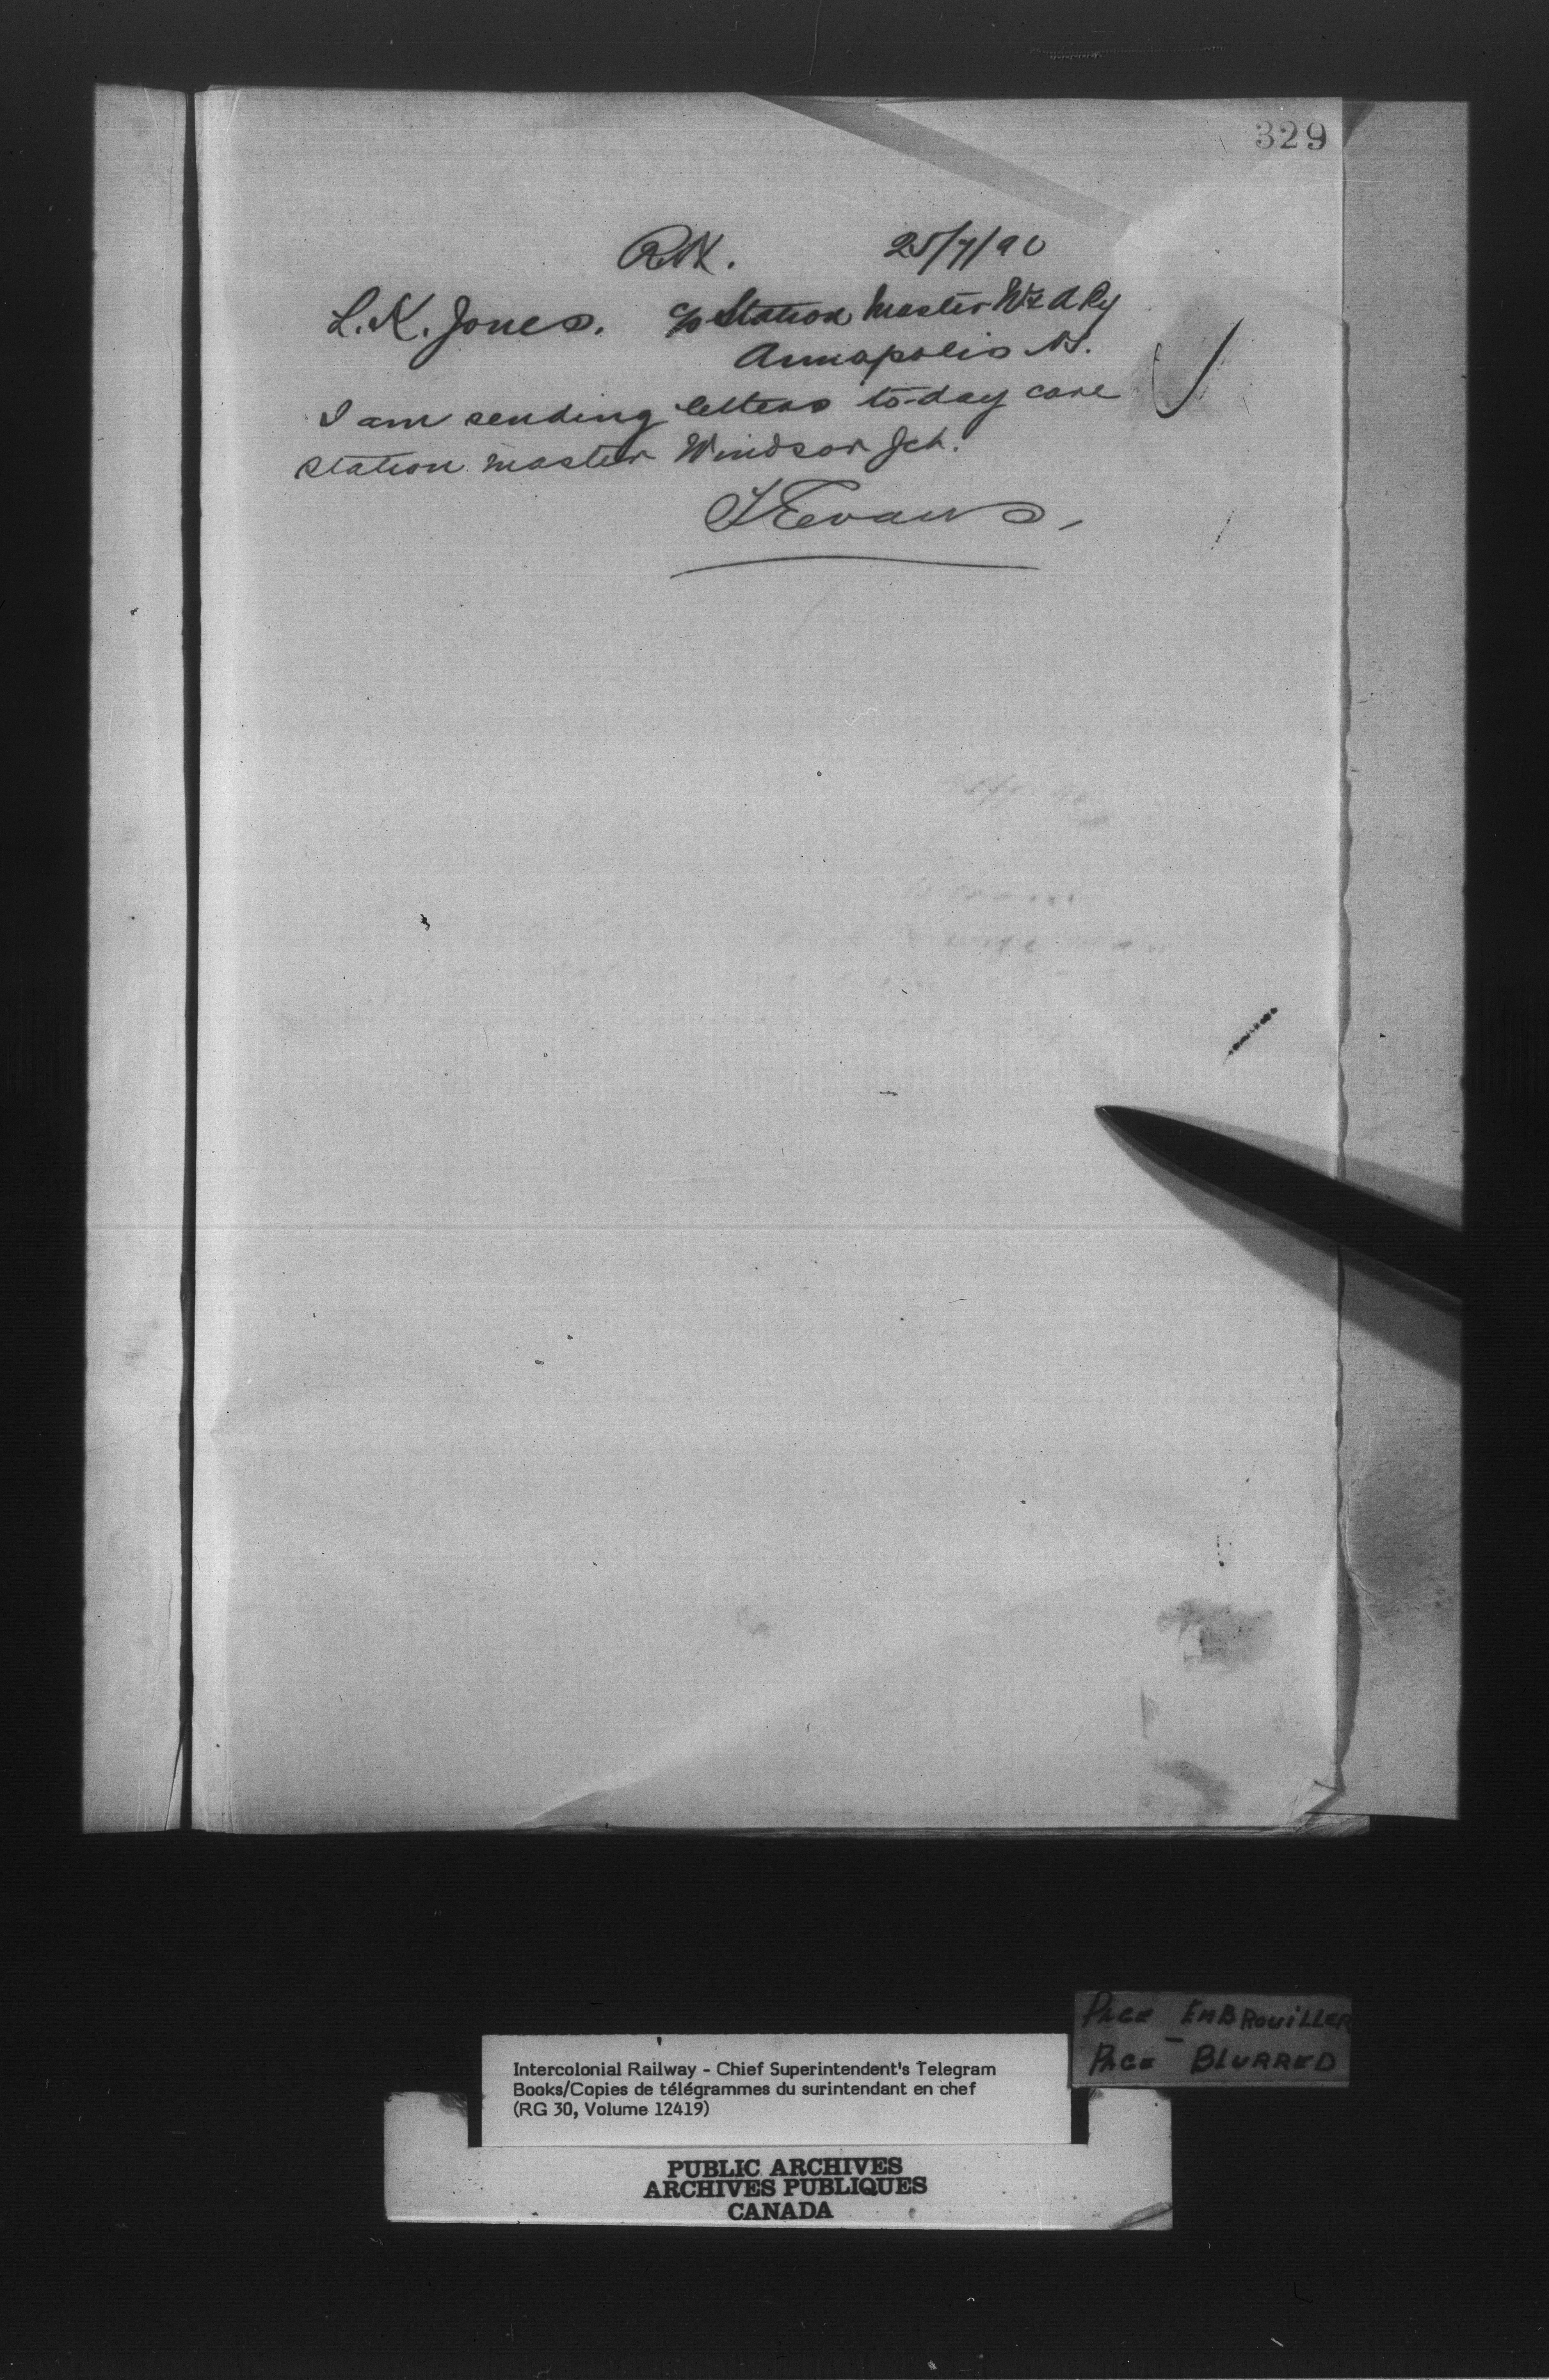 329
RK. 25/7/90
L. K. Jones. c/o Station Master W & A Ry
Annapolis NS.
I am sending letters to-day care
station master Windsor Jct.
Evans,
PAGE EMBROUILLER
PAGE - BLURRED
Intercolonial Railway - Chief Superintendent's Telegram
Books/Copies de télégrammes du surintendant en chef
(RG 30, Volume 12419)
PUBLIC ARCHIVES
ARCHIVES PUBLIQUES
CANADA